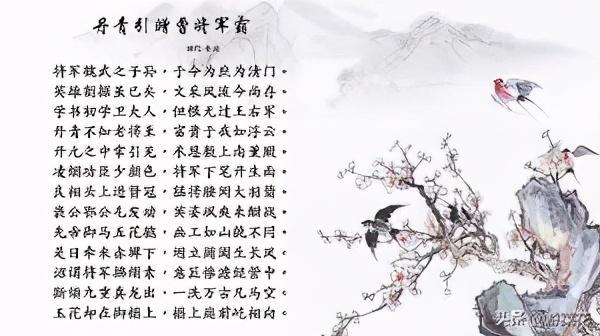 丹青引赠曹将军霸
将军魏武之子孙，于今为庶为清门。
英雄割据虽已矣，文采风流今尚存。
学书初学卫夫人，但恨无过王右军。
丹青不知老将至，富贵于我如浮云。
开元之中常引见，承恩数上南熏殿。
凌烟功臣少颜色，将军下笔开生面。
良相头上进贤冠，猛将腰间大羽箭。
褒公鄂公毛发动，英姿飒爽来酣战。
先帝御马五花骢，画工如山貌不同。
是日牵来赤墀下，迥立阊阖生长风。
诏谓将军拂绢素，意匠惨澹经营中。
斯须九重真龙出，一洗万古凡马空。
玉花却在御榻上，榻上庭前屹相向。